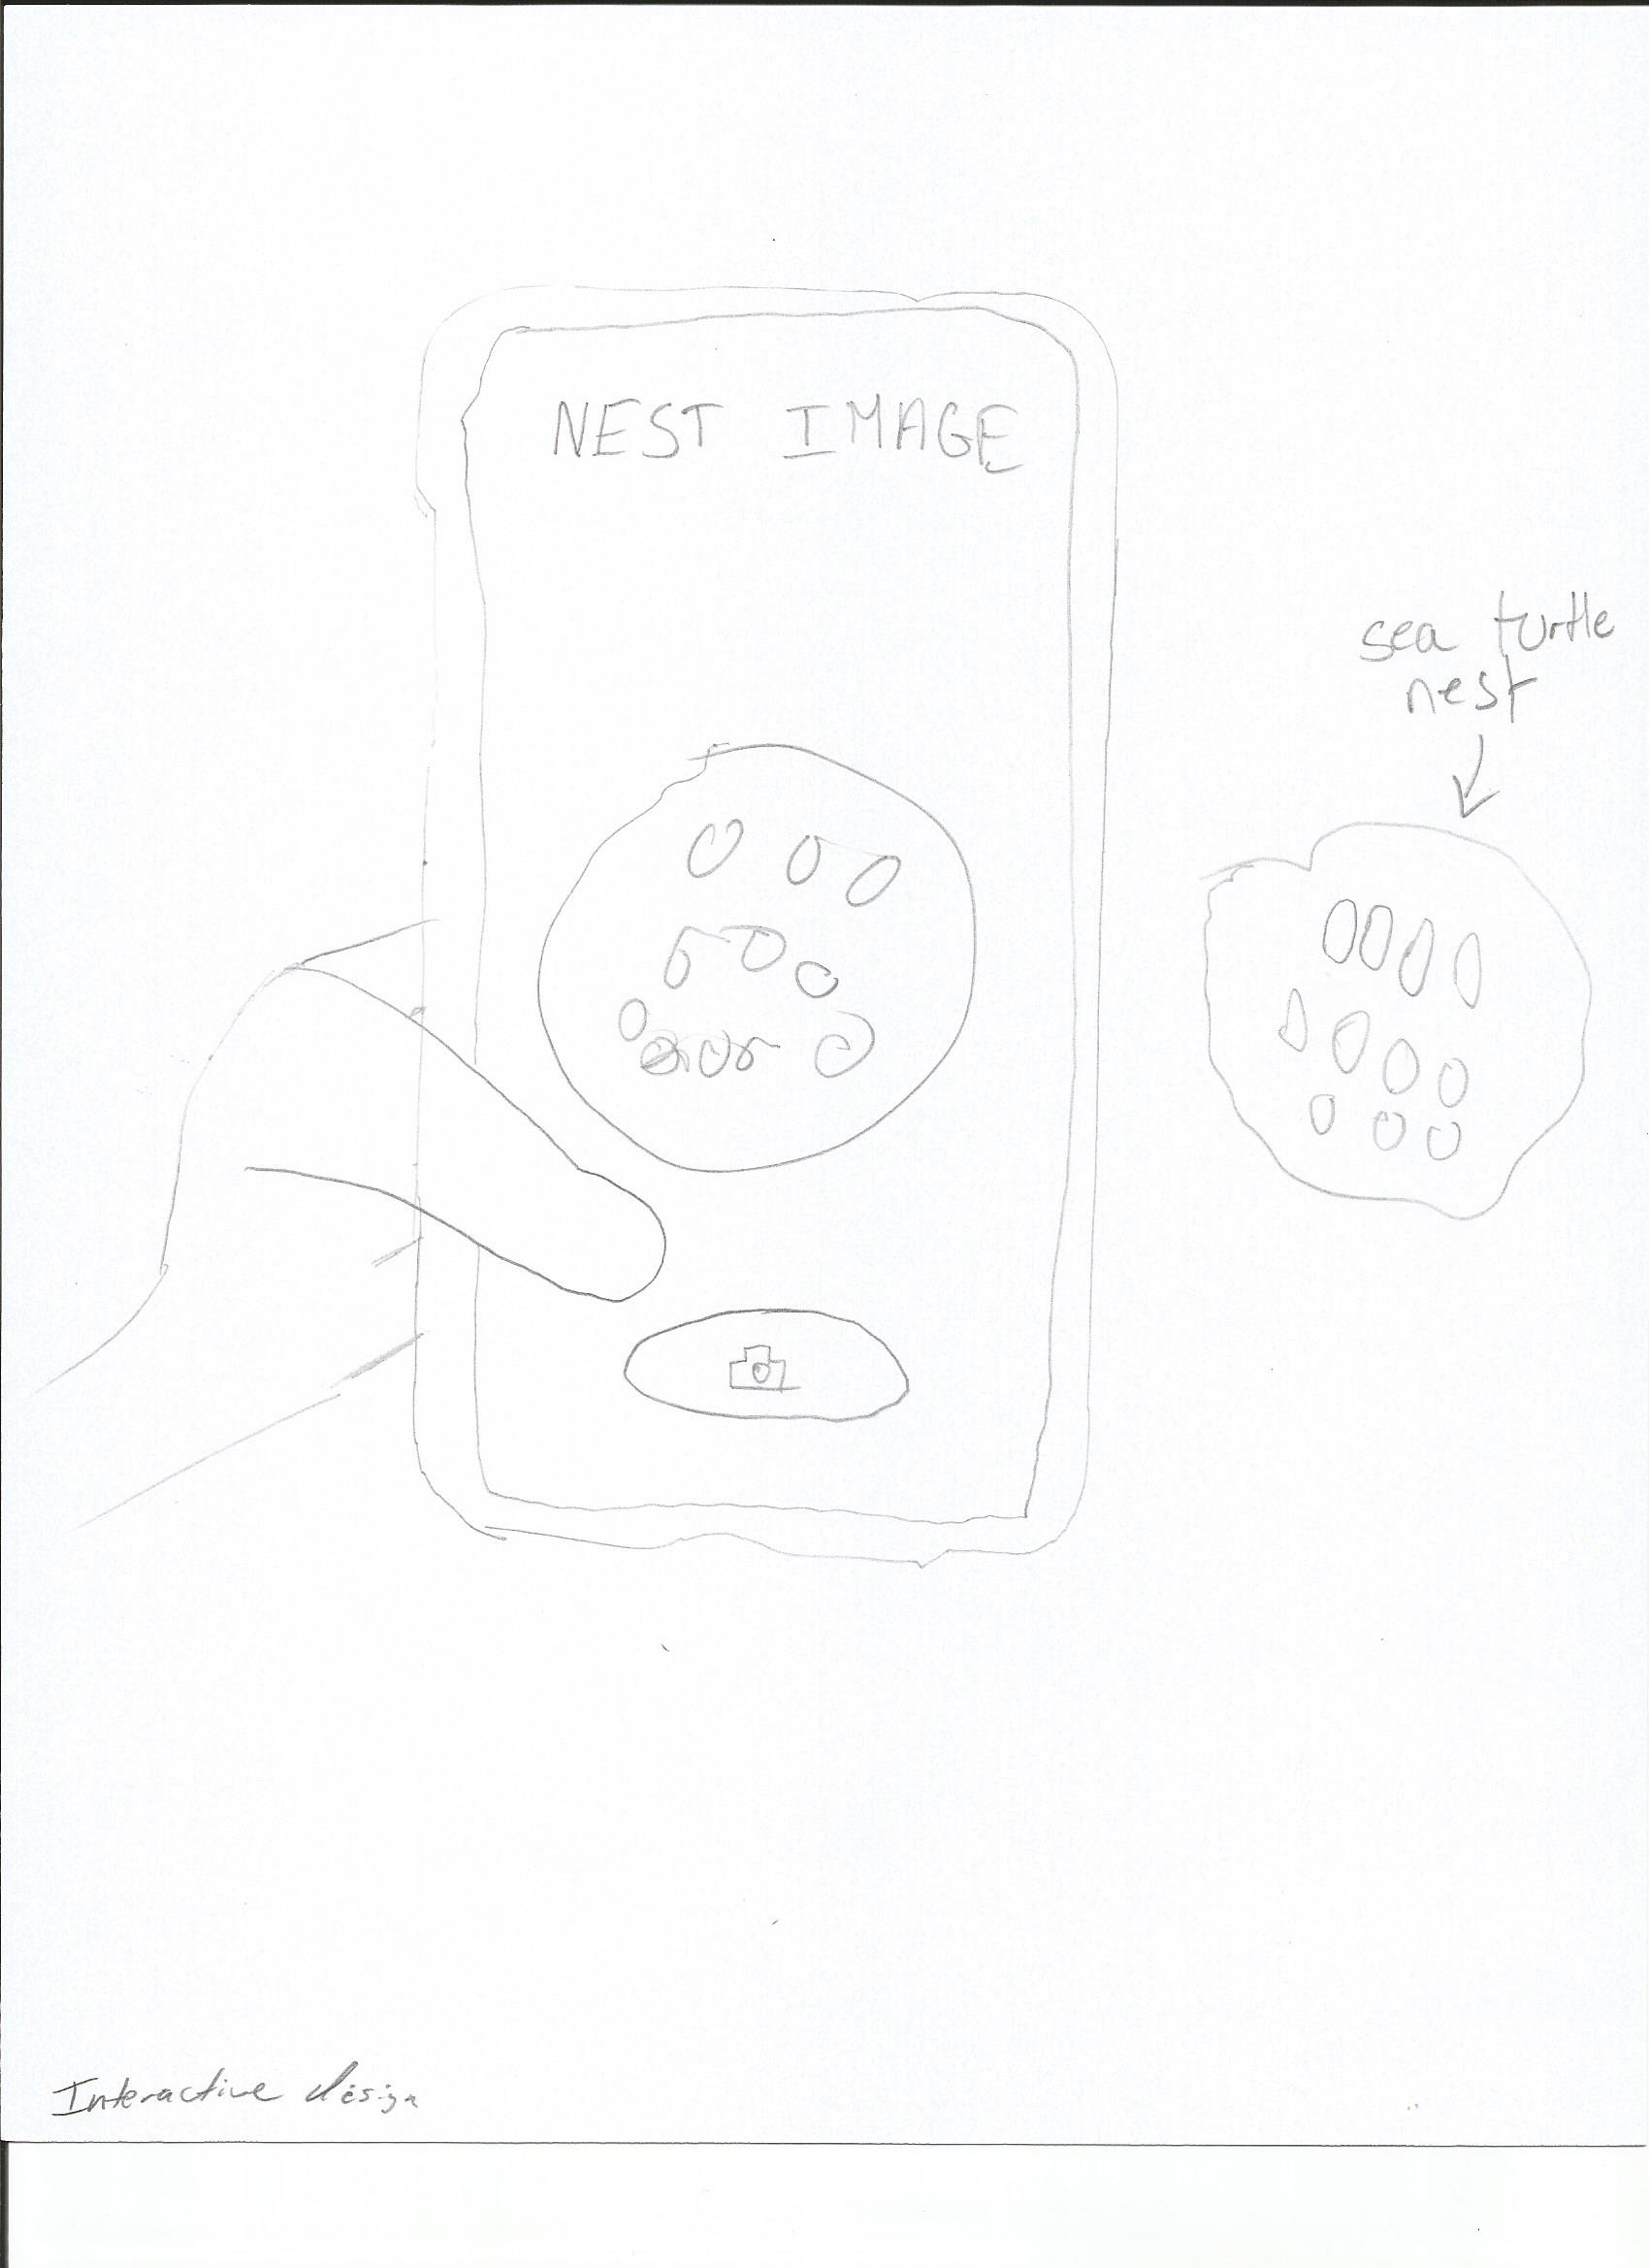 NEST IMAGE
sea turtle
nest
Interactive design